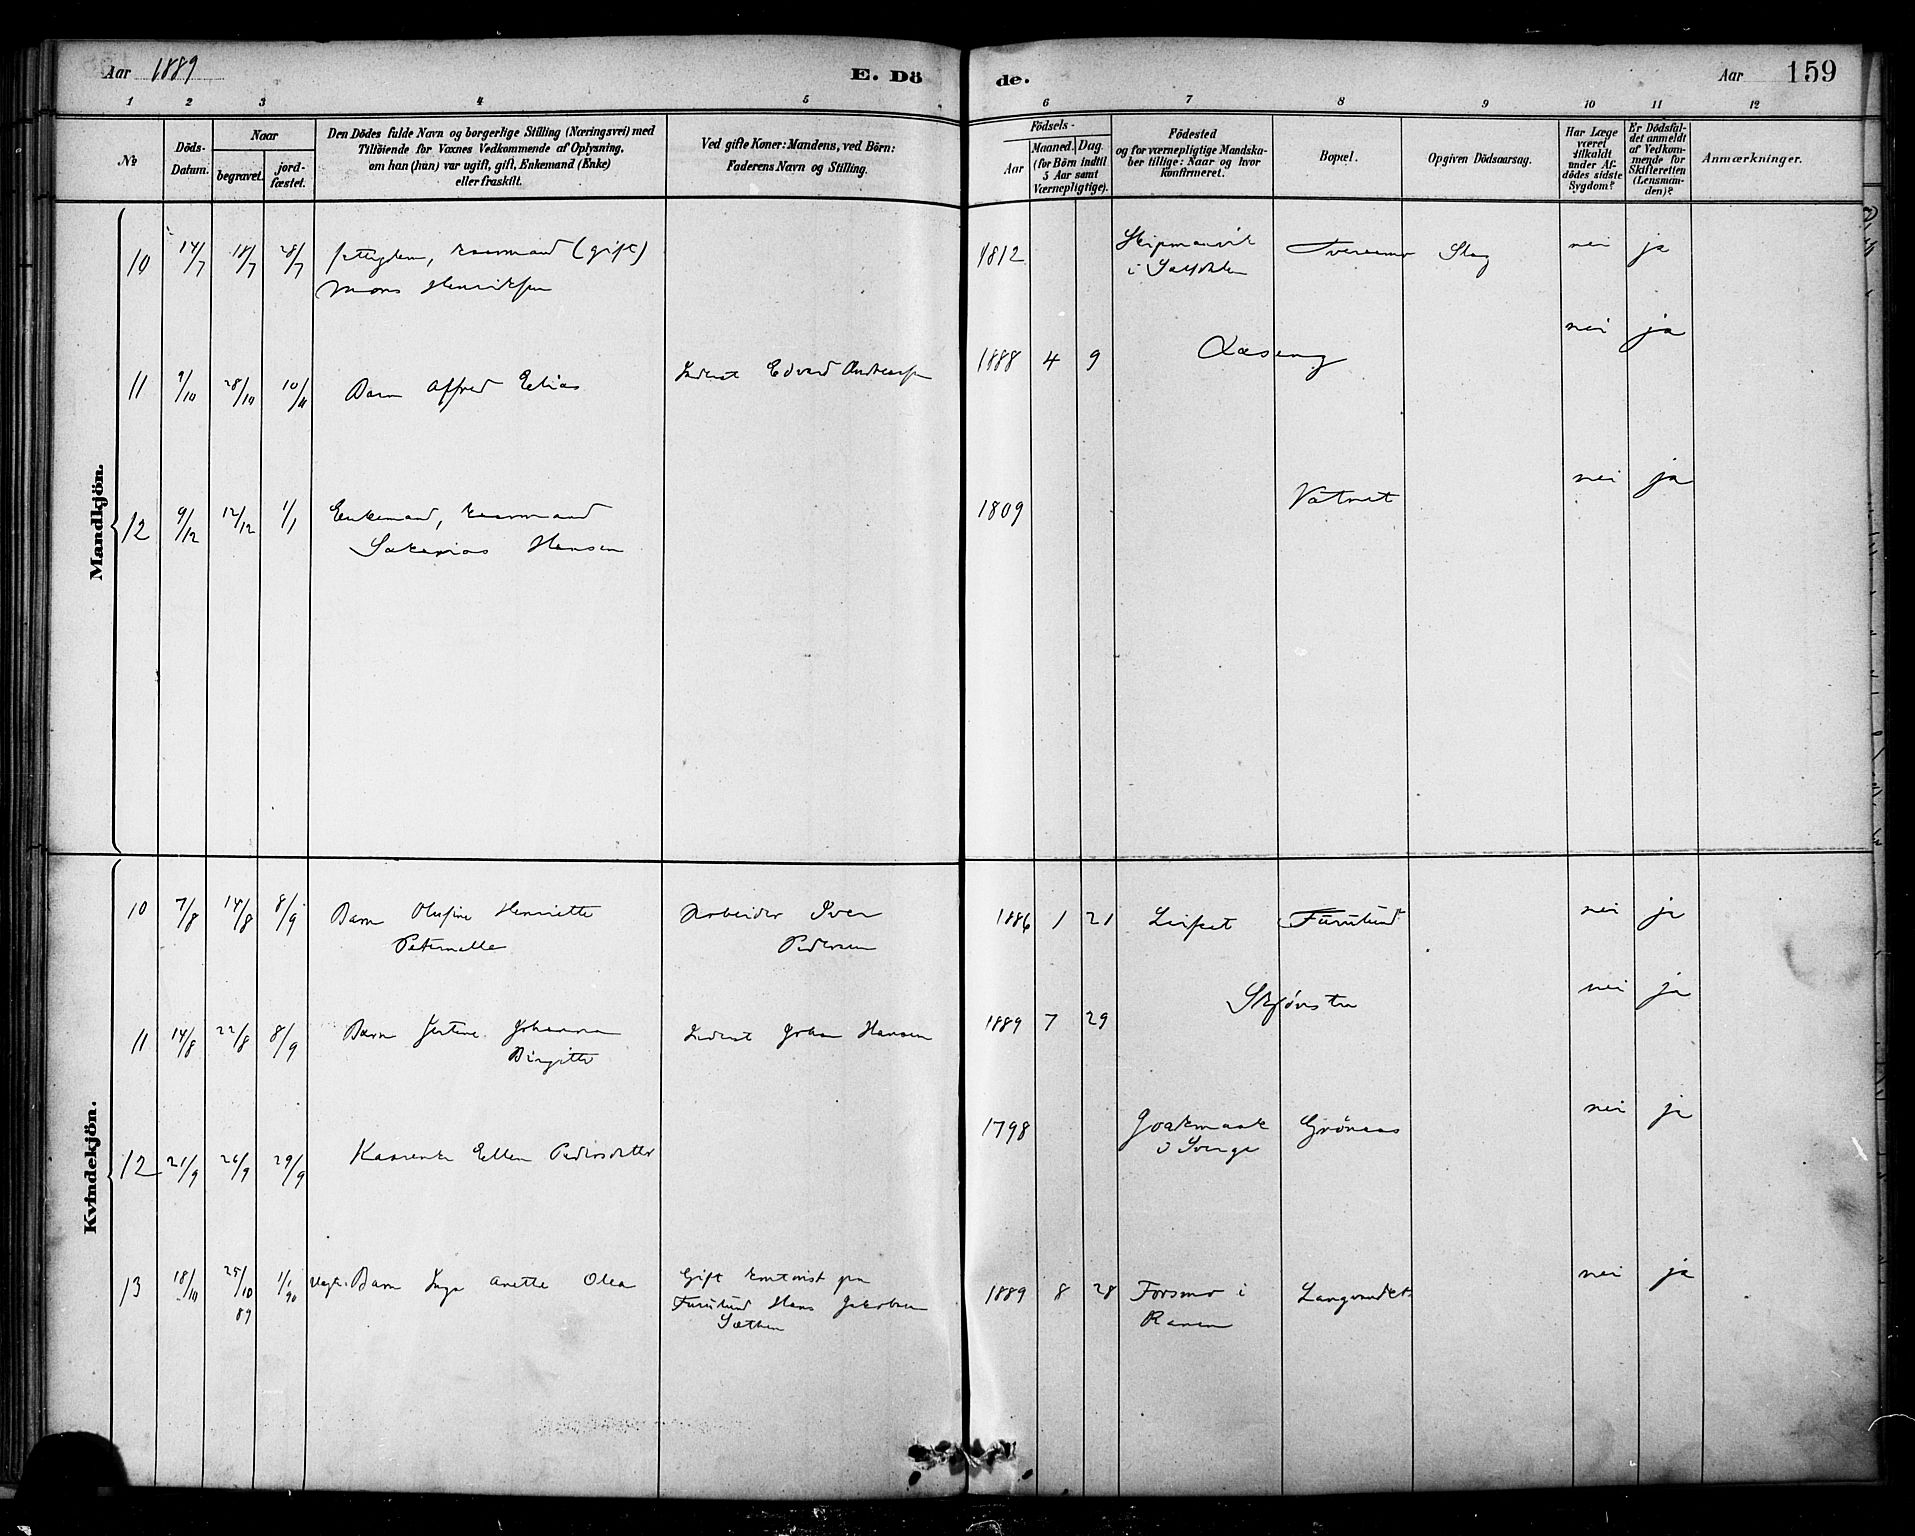 Aar 1889
E. Dö
de.
Aar
159
1 2 3 4 5 6 7 8 9 10 11 12
№
Döds-
Datum.
Naar
begravet.
jord-
fæstet.
Den Dödes fulde Navn og borgerlige Stilling (Næringsvei) med
Tilföiende for Voxnes Vedkommende af Oplysning,
om han (hun) var ugift, gift, Enkemand (Enke)
eller fraskilt.
Ved gifte Koner: Mandens, ved Börn:
Faderens Navn og Stilling.
Födsels-
Aar
Maaned. Dag.
(for Börn indtil
5 Aar samt
Værnepligtige).
Födested
og for værnepligtige Mandska-
ber tillige: Naar og hvor
konfirmeret.
Bopæl.
Opgiven Dödsaarsag.
Har Læge
været
tilkaldt
under Af-
dödes sidste
Sygdom?
Er Dödsfal-
det anmeldt
af Vedkom-
mende for
Skifteretten
(Lensman-
den)?
Anmærkninger.
Mandkjön.
10 14/7 18/7 28/7 (gift) 1812 nei ja
Mons Henriksen
11 9/10 28/10 10/11 Barn Alfred Elias Inderst Edvard Andreassen 1888 4 9 nei ja
12 9/12 12/12 1/1 Enkemand, 1809 Vatnet nei ja
Sakarias Hansen
Kvindekjön.
10 7/8 14/8 8/9 Barn Olufine Henriette Arbeider Iver 1886 1 21 Furulund nei ja
Peternelle Pedersen
11 14/8 22/8 8/9 Barn Justine Johanna Inderst Johan Hansen 1889 7 29 Skjönstu nei ja
Birgitte
12 21/9 26/9 29/9 Ellen Pedersdatter 1798 Jockmock Grönaas nei ja
i Sverge
13 18/10 25/10 89 1/1 90 Barn Inga Anette Olea Gift 1889 8 28 Forsmo i Langvandet nei ja
Furulund Hans Jakobsen Ranen
Sæther